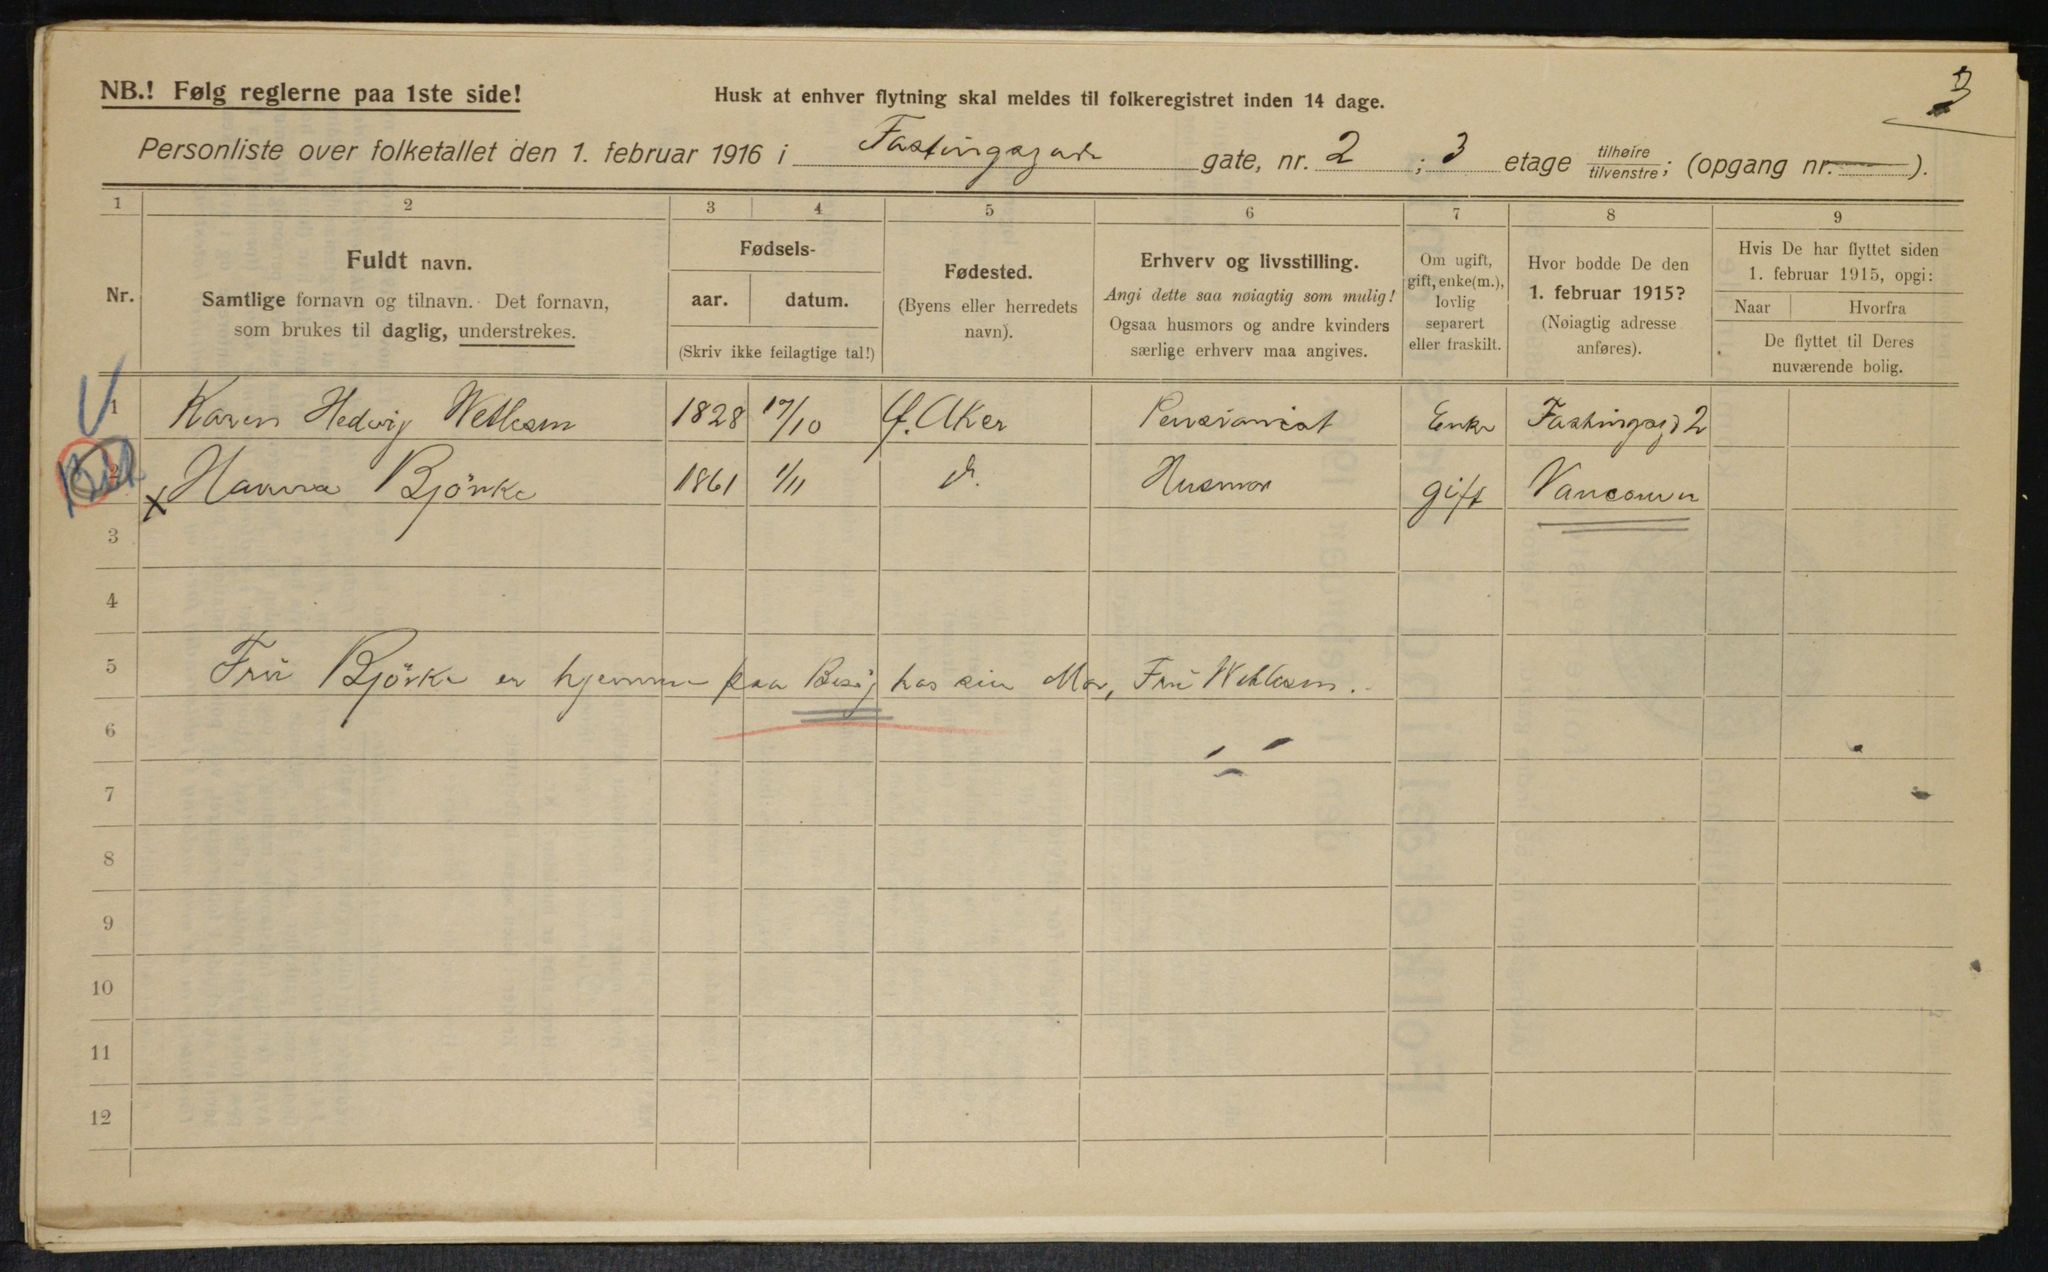 NB.! Følg reglerne paa 1ste side!
Husk at enhver flytning skal meldes til folkeregistret inden 14 dage.
3
Personliste over folketallet den 1. februar 1916 i Fastingsgade gate, nr. 2 ; 3 etage tilhøire/tilvenstre; (opgang nr. — ).
1 2 3 4 5 6 7 8 9
Nr.
Fuldt navn.
Samtlige fornavn og tilnavn. Det fornavn,
som brukes til daglig, understrekes.
Fødsels-
aar. datum.
(Skriv ikke feilagtige tal!)
Fødested.
(Byens eller herredets
navn).
Erhverv og livsstilling.
Angi dette saa nøiagtig som mulig!
Ogsaa husmors og andre kvinders
særlige erhverv maa angives.
Om ugift,
gift, enke(m.),
lovlig
separert
eller fraskilt.
Hvor bodde De den
1. februar 1915?
(Nøiagtig adresse
anføres).
Hvis De har flyttet siden
1. februar 1915, opgi:
Naar Hvorfra
De flyttet til Deres
nuværende bolig.
1 Karen Hedvig Wetlesen 1828 17/10 Aker Pensionist Enke Fastingsgd 2
2 x Hanna Björke 1861 1/11 Husmor gift Vancouver
3
4
5 Frü Björke er hjemme paa Besøg hos sin Mor, Frü Wetlesen.
6
7
8
9
10
11
12